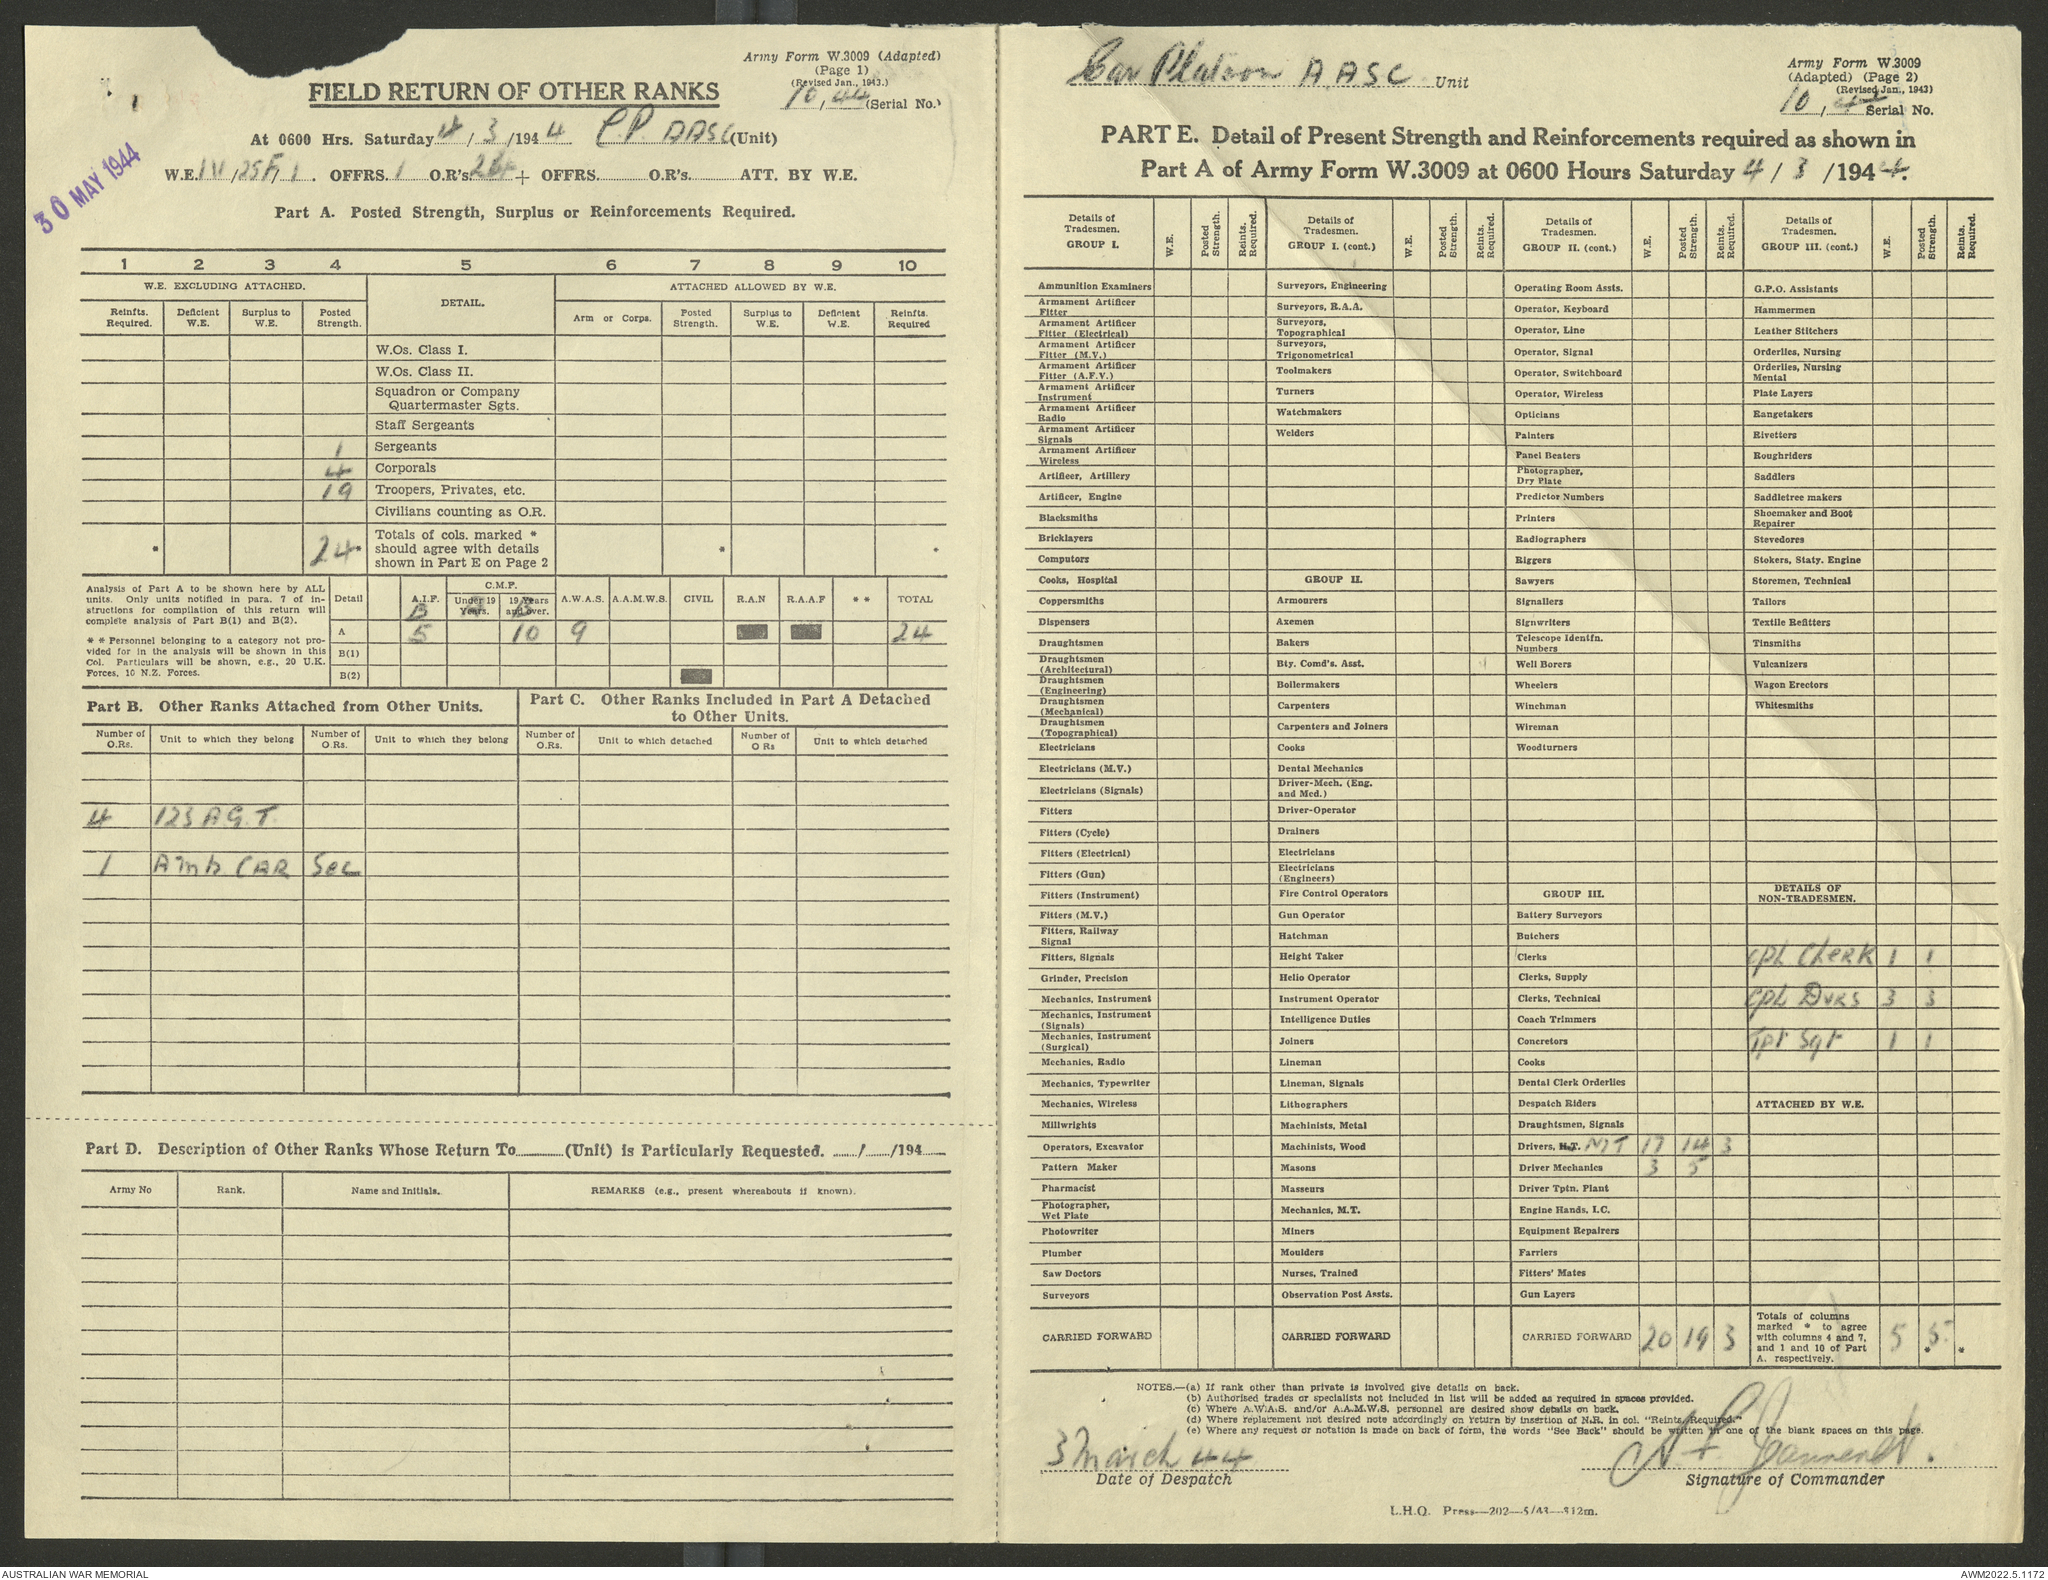 Army Form W.3009 (Adapted)
(Page 1)
(Revised Jan., 1943.)
10, 44 (Serial No.)
FIELD RETURN OF OTHER RANKS
At 0600 Hrs. Saturday 4/3/1944 C.P. AASC (Unit)
W.E. OFFRS. 1 O.R's. + OFFRS. O.R's. ATT. BY W.E.
30 MAY 1944
Part A. Posted Strength, Surplus or Reinforcements Required.
1 2 3 4 5 6 7 8 9 10
W.E. EXCLUDING ATTACHED. DETAIL. ATTACHED ALLOWED BY W.E.
Reinfts. Required. Deficient W.E. Surplus to W.E. Posted Strength. Arm or Corps. Posted Strength. Surplus to W.E. Deficient W.E. Reinfts. Required
W.Os. Class I.
W.Os. Class II.
Squadron or Company
Quartermaster Sgts.
Staff Sergeants
1 Sergeants
4 Corporals
19 Troopers, Privates, etc.
Civilians counting as O.R.
* 24* Totals of cols. marked * should agree with details shown in Part E on Page 2 * *
Analysis of Part A to be shown here by ALL
units. Only units notified in para. 7 of in-
structions for compilation of this return will
complete analysis of Part B(1) and B(2).
* * Personnel belonging to a category not pro-
vided for in the analysis will be shown in this
Col. Particulars will be shown, e.g., 20 U.K.
Forces, 10 N.Z. Forces.
Detail A.I.F. C.M.F. Under 19 Years. 19 Years and over. A.W.A.S. A.A.M.W.S. CIVIL R.A.N R.A.A.F * * TOTAL
A 5 10 9 24
B(1)
B(2)
Part B. Other Ranks Attached from Other Units.
Part C. Other Ranks Included in Part A Detached
to Other Units.
Number of O.Rs. Unit to which they belong Number of O.Rs. Unit to which they belong Number of O.Rs. Unit to which detached Number of O Rs Unit to which detached
4 123 A.G.T.
1 Amb CAR Sec
Part D. Description of Other Ranks Whose Return To (Unit) is Particularly Requested. / /194
Army No Rank. Name and Initials. REMARKS (e.g., present whereabouts if known).
Car Platoon AASC Unit
Army Form W.3009
(Adapted) (Page 2)
(Revised Jan., 1943)
10, 44 Serial No.
PART E. Detail of Present Strength and Reinforcements required as shown in
Part A of Army Form W.3009 at 0600 Hours Saturday 4/3/1944.
Details of Tradesmen. GROUP I. W.E. Posted Strength. Reints. Required.
Ammunition Examiners
Armament Artificer Fitter
Armament Artificer Fitter (Electrical)
Armament Artificer Fitter (M.V.)
Armament Artificer Fitter (A.F.V.)
Armament Artificer Instrument
Armament Artificer Radio
Armament Artificer Signals
Armament Artificer Wireless
Artificer, Artillery
Artificer, Engine
Blacksmiths
Bricklayers
Computors
Cooks, Hospital
Coppersmiths
Dispensers
Draughtsmen
Draughtsmen (Architectural)
Draughtsmen (Engineering)
Draughtsmen (Mechanical)
Draughtsmen (Topographical)
Electricians
Electricians (M.V.)
Electricians (Signals)
Fitters
Fitters (Cycle)
Fitters (Electrical)
Fitters (Gun)
Fitters (Instrument)
Fitters (M.V.)
Fitters, Railway Signal
Fitters, Signals
Grinder, Precision
Mechanics, Instrument
Mechanics, Instrument (Signals)
Mechanics, Instrument (Surgical)
Mechanics, Radio
Mechanics, Typewriter
Mechanics, Wireless
Millwrights
Operators, Excavator
Pattern Maker
Pharmacist
Photographer, Wet Plate
Photowriter
Plumber
Saw Doctors
Surveyors
CARRIED FORWARD
Details of Tradesmen. GROUP I. (cont.) W.E. Posted Strength. Reints. Required.
Surveyors, Engineering
Surveyors, R.A.A.
Surveyors, Topographical
Surveyors, Trigonometrical
Toolmakers
Turners
Watchmakers
Welders
GROUP II.
Armourers
Axemen
Bakers
Bty. Comd's. Asst.
Boilermakers
Carpenters
Carpenters and Joiners
Cooks
Dental Mechanics
Driver-Mech. (Eng. and Med.)
Driver-Operator
Drainers
Electricians
Electricians (Engineers)
Fire Control Operators
Gun Operator
Hatchman
Height Taker
Helio Operator
Instrument Operator
Intelligence Duties
Joiners
Lineman
Lineman, Signals
Lithographers
Machinists, Metal
Machinists, Wood
Masons
Masseurs
Mechanics, M.T.
Miners
Moulders
Nurses, Trained
Observation Post Assts.
CARRIED FORWARD
Details of Tradesmen. GROUP II. (cont.) W.E. Posted Strength. Reints. Required.
Operating Room Assts.
Operator, Keyboard
Operator, Line
Operator, Signal
Operator, Switchboard
Operator, Wireless
Opticians
Painters
Panel Beaters
Photographer, Dry Plate
Predictor Numbers
Printers
Radiographers
Riggers
Sawyers
Signallers
Signwriters
Telescope Identfn. Numbers
Well Borers
Wheelers
Winchman
Wireman
Woodturners
GROUP III.
Battery Surveyors
Butchers
Clerks
Clerks, Supply
Clerks, Technical
Coach Trimmers
Concretors
Cooks
Dental Clerk Orderlies
Despatch Riders
Draughtsmen, Signals
Drivers, H.T. MT 17 14 3
Driver Mechanics 3 5
Driver Tptn. Plant
Engine Hands, I.C.
Equipment Repairers
Farriers
Fitters' Mates
Gun Layers
CARRIED FORWARD 20 19 3
Details of Tradesmen. GROUP III. (cont.) W.E. Posted Strength. Reints. Required.
G.P.O. Assistants
Hammermen
Leather Stitchers
Orderlies, Nursing
Orderlies, Nursing Mental
Plate Layers
Rangetakers
Rivetters
Roughriders
Saddlers
Saddletree makers
Shoemaker and Boot Repairer
Stevedores
Stokers, Staty. Engine
Storemen, Technical
Tailors
Textile Refitters
Tinsmiths
Vulcanizers
Wagon Erectors
Whitesmiths
DETAILS OF NON-TRADESMEN.
Cpl Clerk 1 1
Cpl Dvrs 3 3
Tpt Sgt 1 1
ATTACHED BY W.E.
Totals of columns marked * to agree with columns 4 and 7, and 1 and 10 of Part A. respectively. 5 5 * *
NOTES.—(a) If rank other than private is involved give details on back.
(b) Authorised trades or specialists not included in list will be added as required in spaces provided.
(c) Where A.W.A.S. and/or A.A.M.W.S. personnel are desired show details on back.
(d) Where replacement not desired note accordingly on return by insertion of N.R. in col. "Reints. Required."
(e) Where any request or notation is made on back of form, the words "See Back" should be written in one of the blank spaces on this page.
3 March 44
Date of Despatch
Signature of Commander
L.H.Q. Press—202—5/43—812m.
AUSTRALIAN WAR MEMORIAL
AWM2022.5.1172